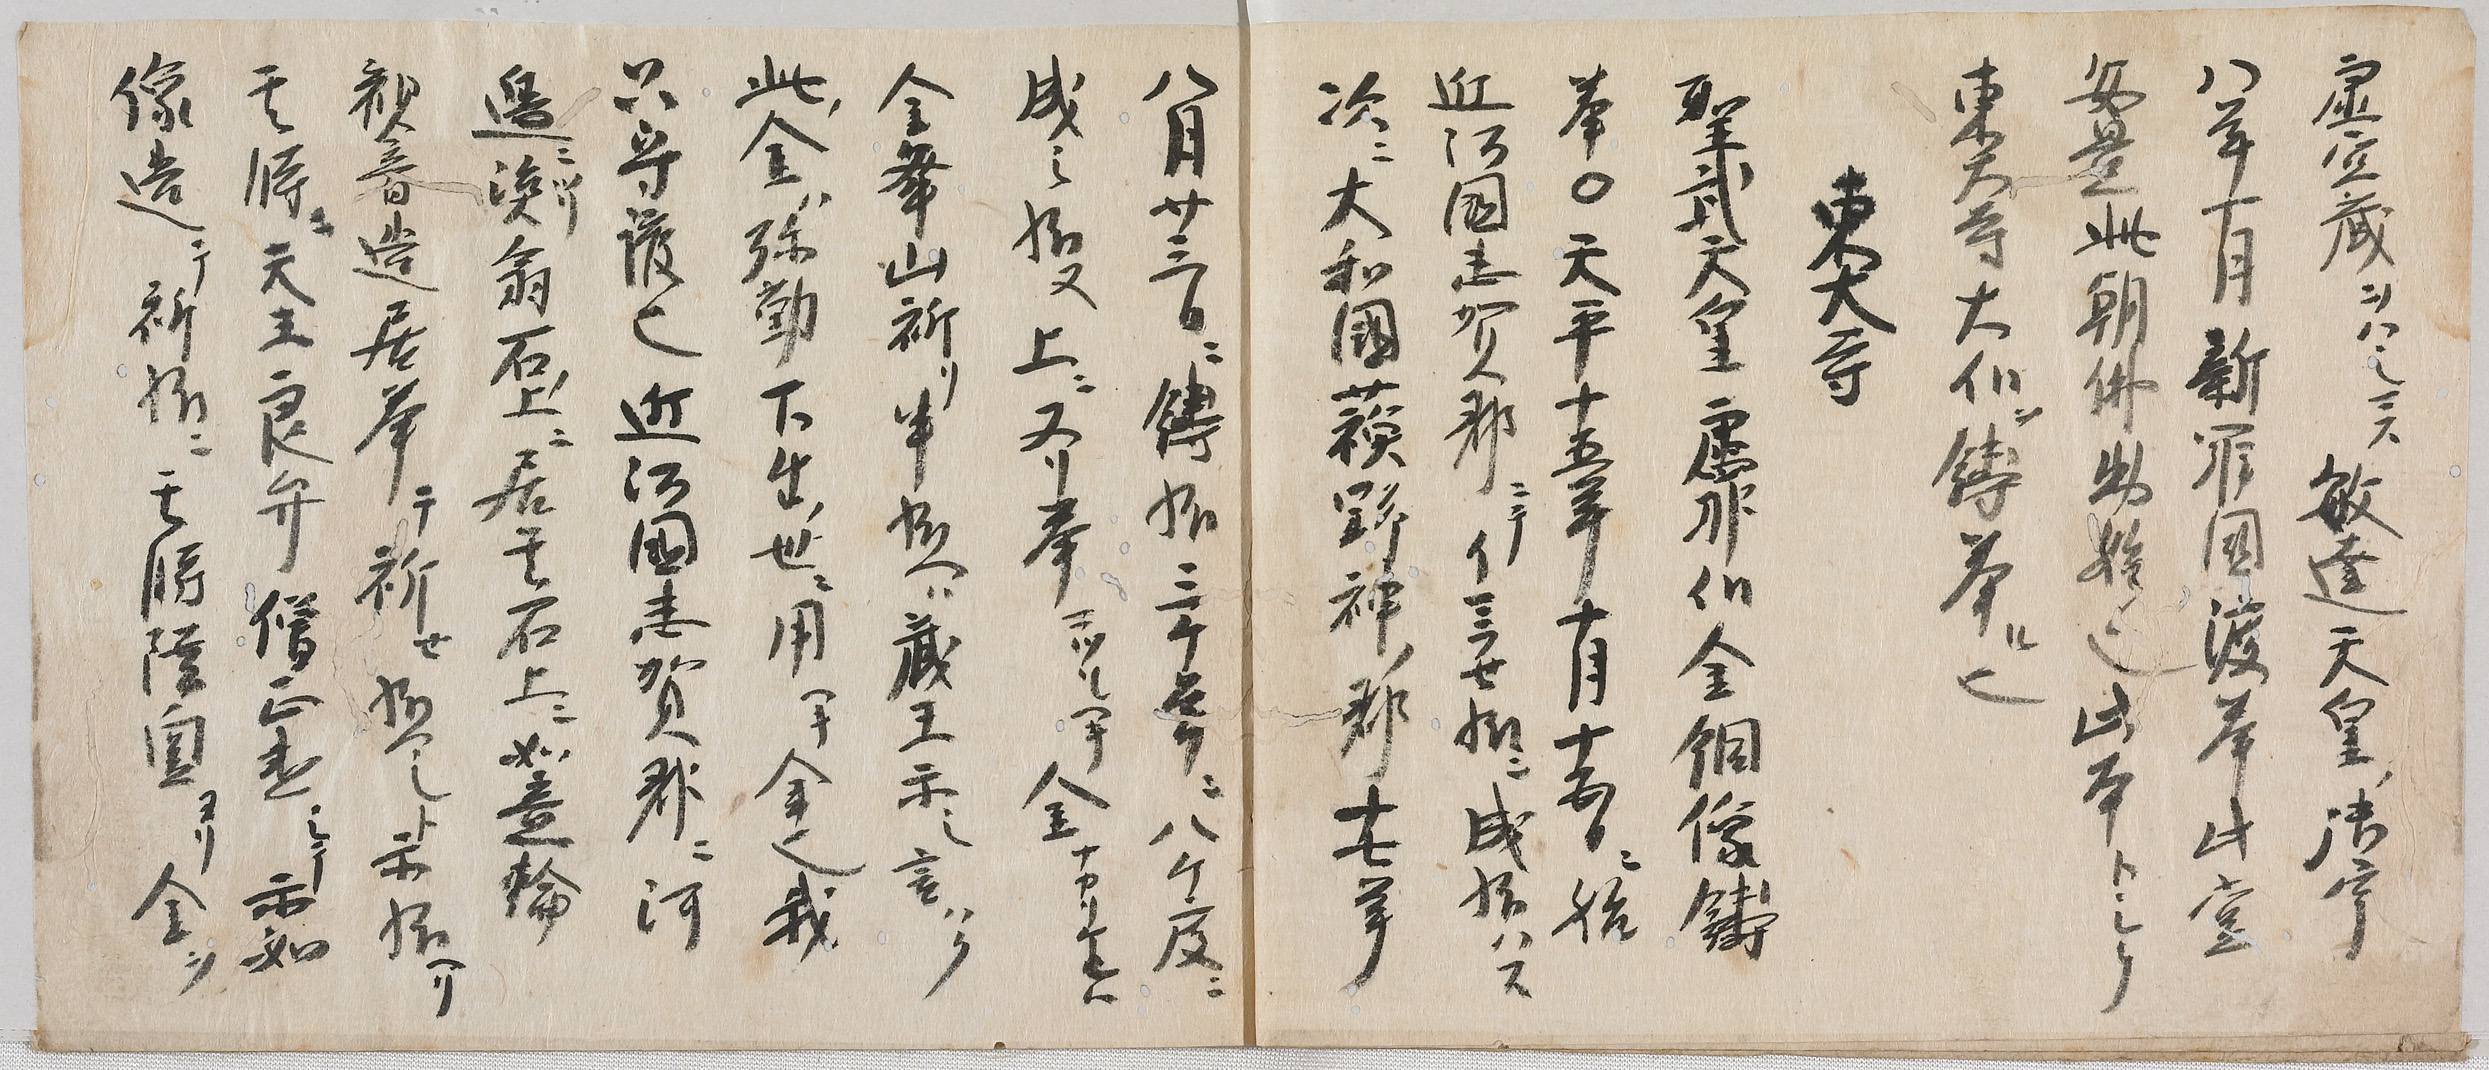 虚空蔵ヲハシマス敏達天皇ノ御宇
八年十月新羅国渡奉此堂
安置此朝仏出始也此本トシテ
東大寺大仏ヲ鋳奉リ也
東大寺
聖武天皇盧那仏金銅像鋳
奉○天平十五年十月十五日ニ始
近江国志賀郡ニテイミシセ給ニ成給ハス
次ニ大和国薮野神ノ郡七年
八月廿三日ニ鋳給三ケ年ニ八ケ度ニ
成シ給又上ニヌリ奉ツルヘキ金ナカリケレハ
金峯山祈リ申給ヘハ蔵王示シ言ハク
此ノ金ハ弥勒下生ノ世ニ用ヘキ金也我
只守護也近江国志賀郡ニ河
邊ニツリ漁翁石ノ上ニ居其石上ニ如意輪
観音造居奉テ祈セ給ヘシト示給ヘリ
其時ニ天王良弁僧正志シテ示如
像造テ祈給ニ其時陸奥ヨリ金ヲ